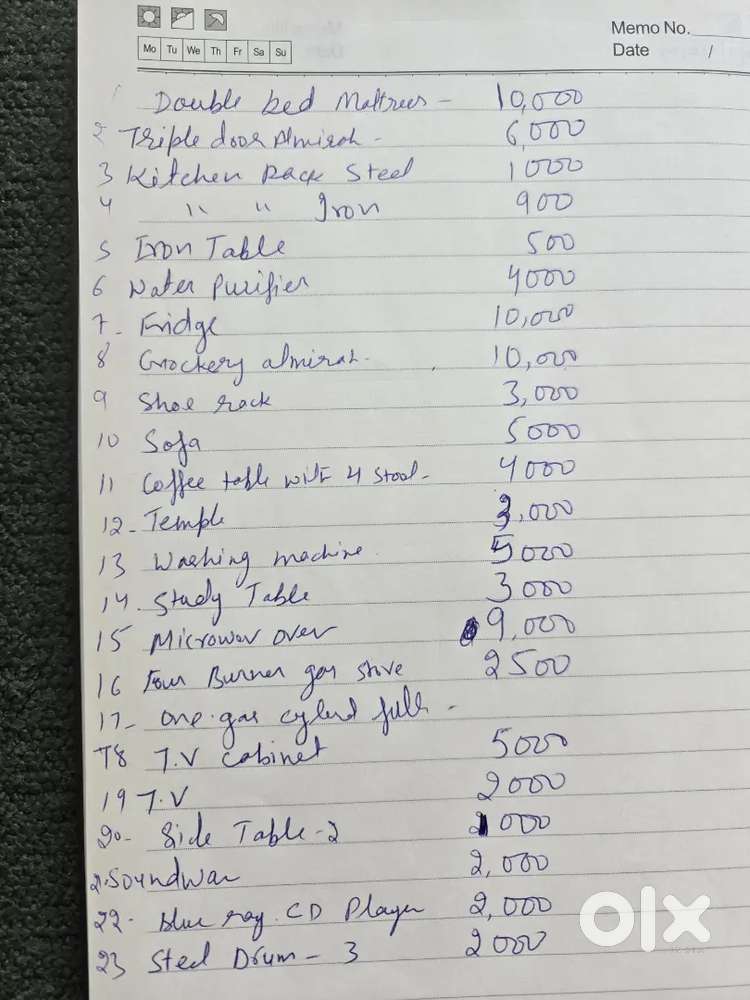 Memo No.
Mo Tu We Th Fr Sa Su
Date /
Double bed Mattrees - 10,000
2 Triple door Almirah - 6,000
3 Kitchen Rack Steel 1000
4 " " Iron 900
5 Iron Table 500
6 Water Purifier 4000
7 - Fridge 10,000
8 Crockery almirah - 10,000
9 Shoe rack 3,000
10 Sofa 5000
11 Coffee table with 4 Stool - 4000
12 - Temple 3,000
13 Washing machine 5000
14 . Study Table 3000
15 Microwav oven 9,000
16 Four Burner gas stove 2500
17 - one gas cylend full -
18 T.V cabinet 5000
19 T.V 2000
20 - Side Table - 2 000
21. Soundwar 2,000
22 - Blue ray CD Player 2,000
23 Steel Drum - 3 2000
olx